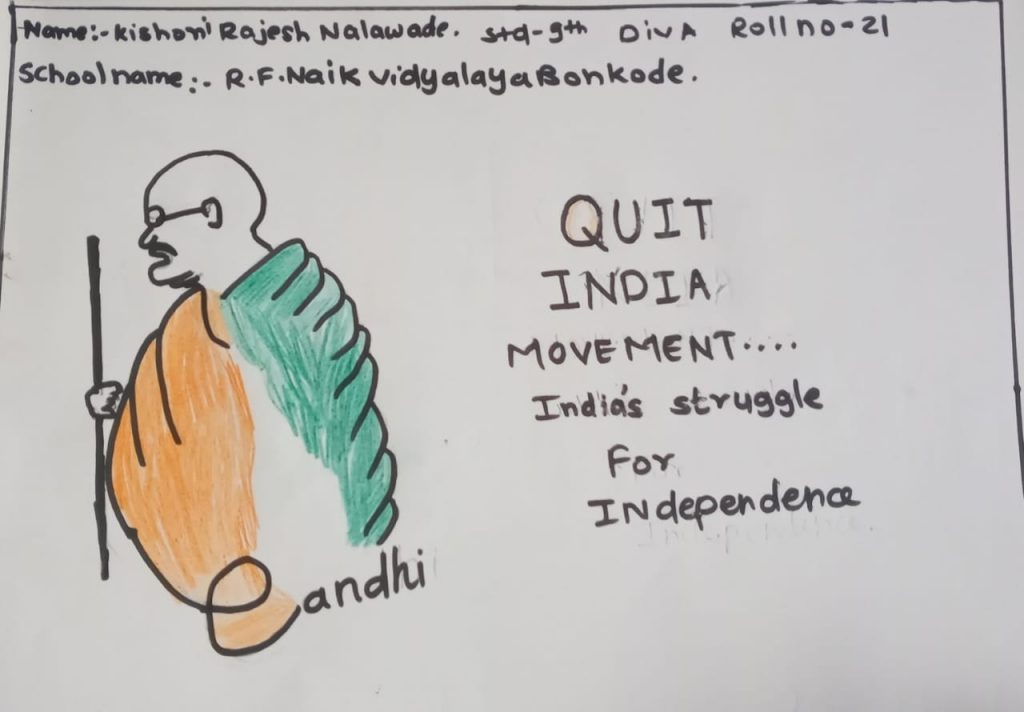 Name:- Kishori Rajesh Nalawade. std-9th Div A Roll no-21
School name:- R.F. Naik vidyalaya Bonkode.
QUIT
INDIA
MOVEMENT....
India's struggle
For
INdependence
Gandhi